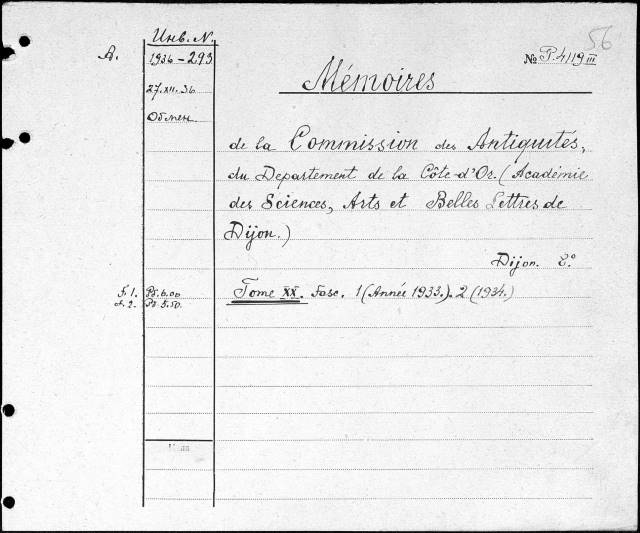 56
Инв. N.
А.
1936-293
№ P.4/19 III
Mémoires
27.XII.36
Обмен
de la Commission des Antiquités,
du Departement de la Côte-d'Or. (Académie
des Sciences, Arts et Belles Lettres de
Dijon.)
Dijon. 8°.
f. 1. Рб. 6.00 Tome XX. Fasc. 1 (Année 1933.). 2 (1934.)
f. 2. Рб. 5.50.